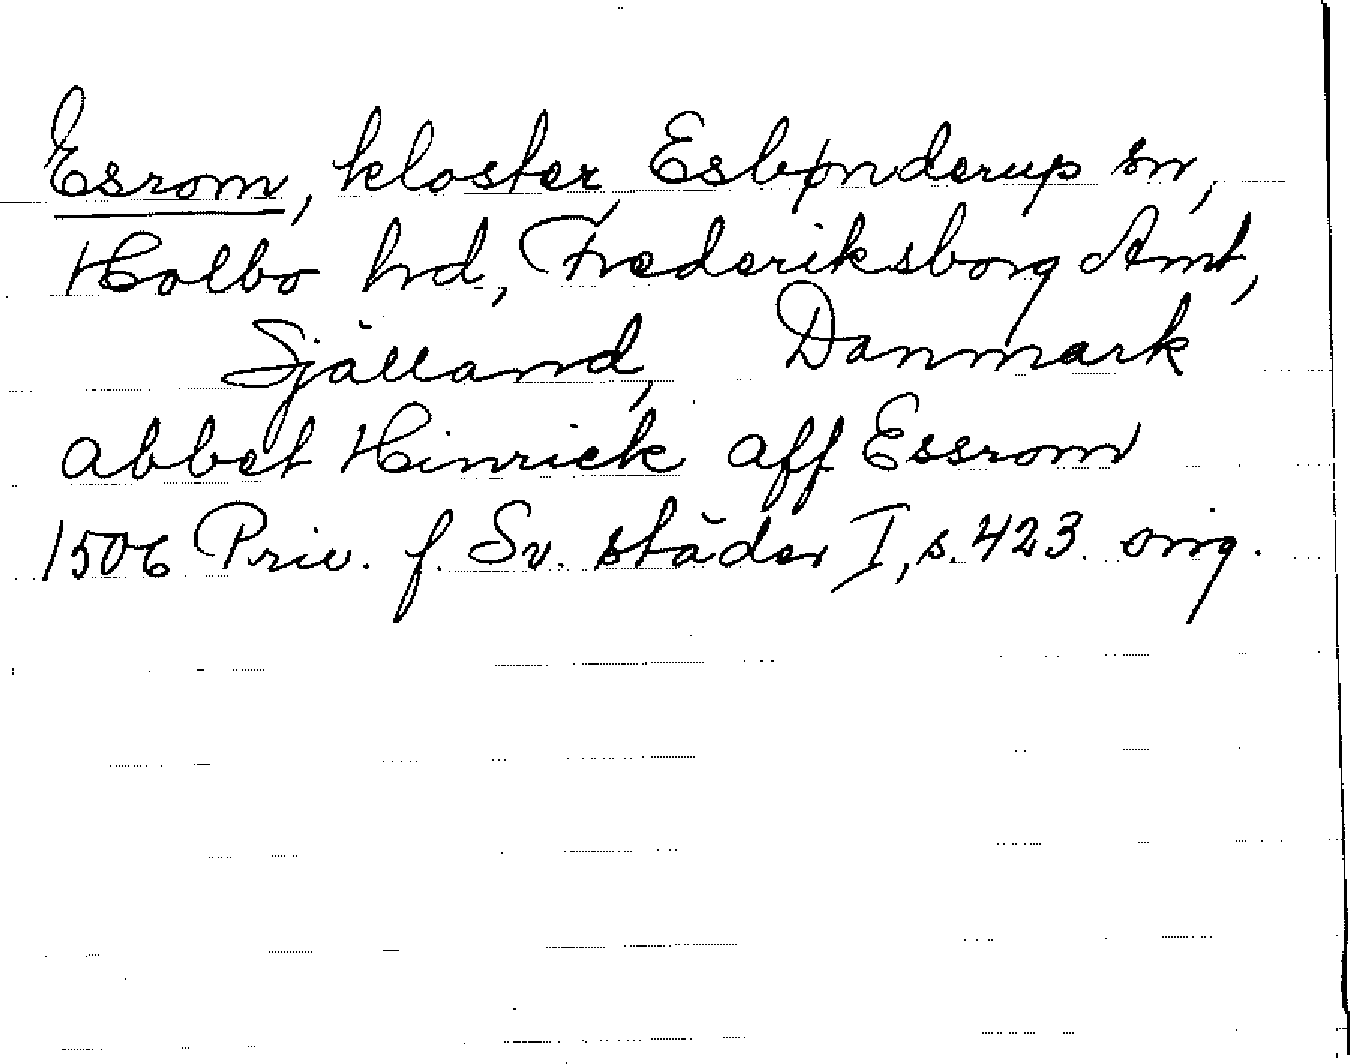 Esrom, kloster, Esbønderup sn,
Holbo hrd, Frederiksborg Amt,
Själland, Danmark
abbet Hinrick aff Essrom
1506 Priv. f. Sv. städer I, s. 423. orig.